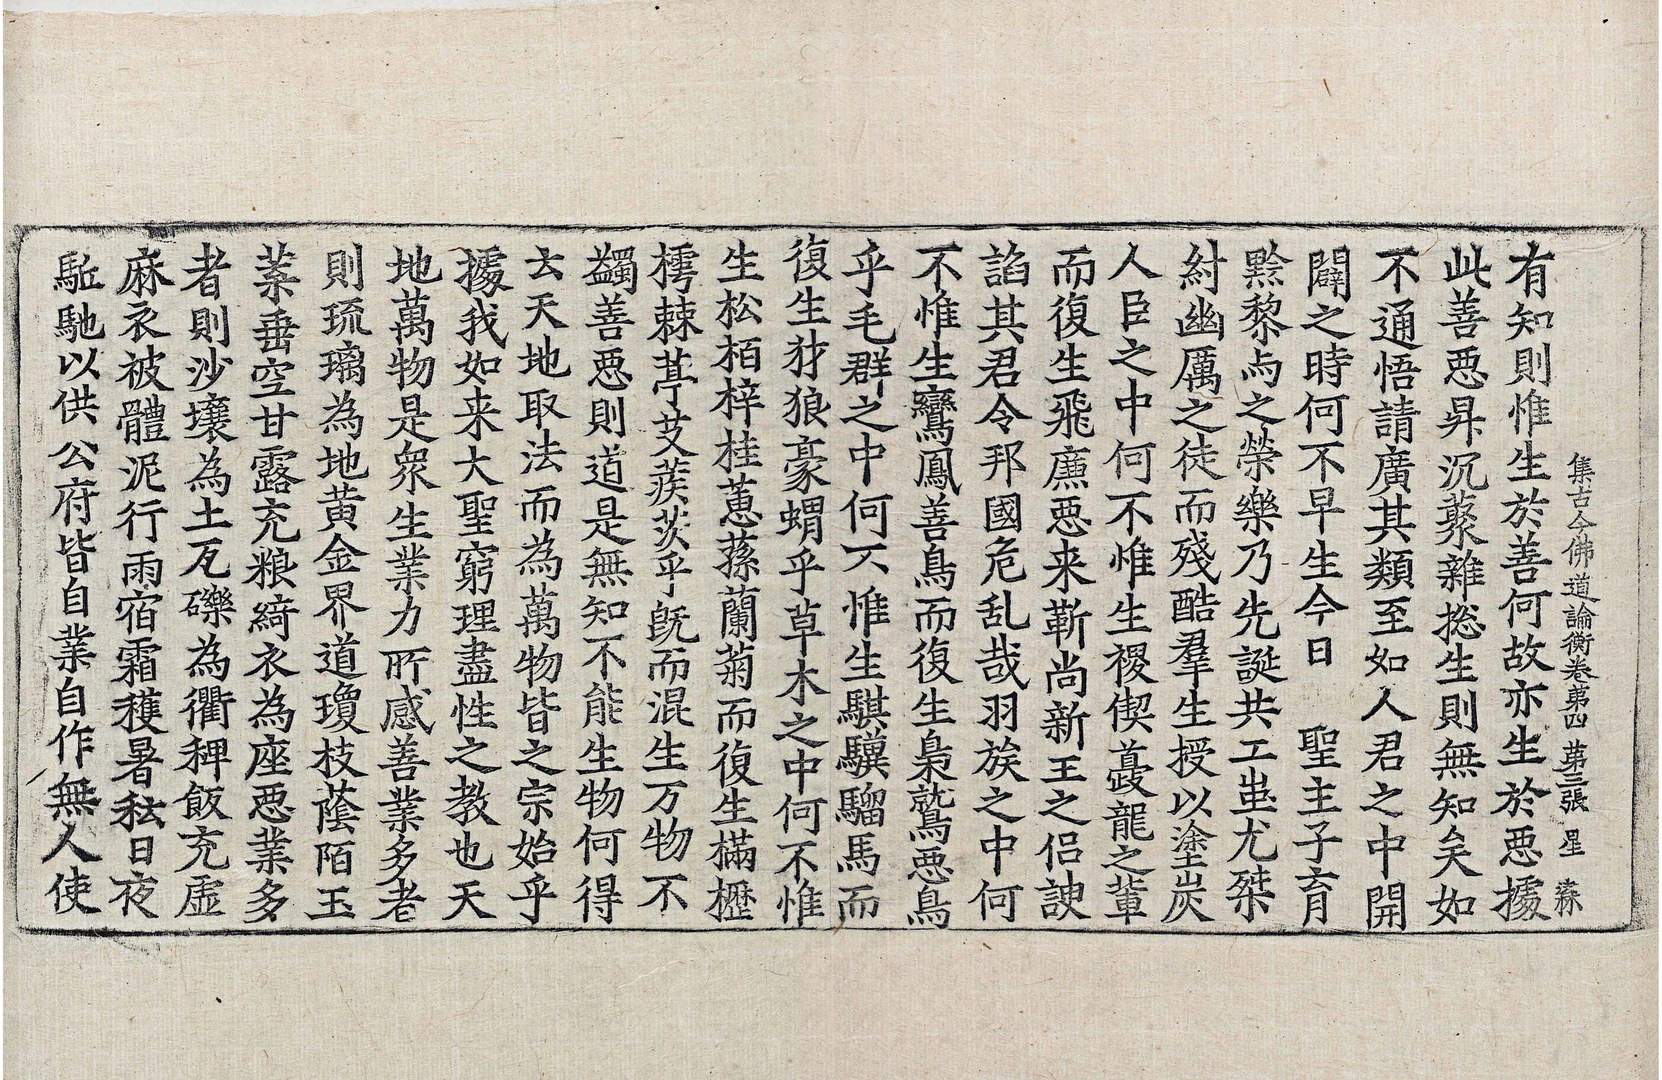 集古今佛道論衡卷第四　第三張　星
有知則惟生於善何故亦生於悪據
此善悪昇沉藂雜捴生則無知矣如
不通悟請廣其類至如人君之中開
闢之時何不早生今日　聖主子育
黔黎与之榮樂乃先誕共工蚩尤桀
紂幽厲之徒而殘酷羣生授以塗炭
人臣之中何不惟生稷偰夔龍之輩
而復生飛廉悪来靳尚新王之侶諛
諂其君令邦國危乱哉羽族之中何
不惟生鸞鳳善鳥而復生梟鷲悪鳥
乎毛群之中何不惟生騏驥騮馬而
復生犲狼豪蝟乎草木之中何不惟
生松栢梓桂蕙蓀蘭菊而復生樠櫪
樗棘葶艾蒺茨乎既而混生万物不
蠲善悪則道是無知不能生物何得
云天地取法而為萬物皆之宗始乎
據我如来大聖窮理盡性之教也天
地萬物是衆生業力所感善業多者
則琉璃為地黄金界道瓊枝蔭陌玉
葉垂空甘露充粮綺衣為座悪業多
者則沙壤為土瓦礫為衢稗飯充虚
麻衣被體泥行雨宿霜穫暑秐日夜
駈馳以供公府皆自業自作無人使